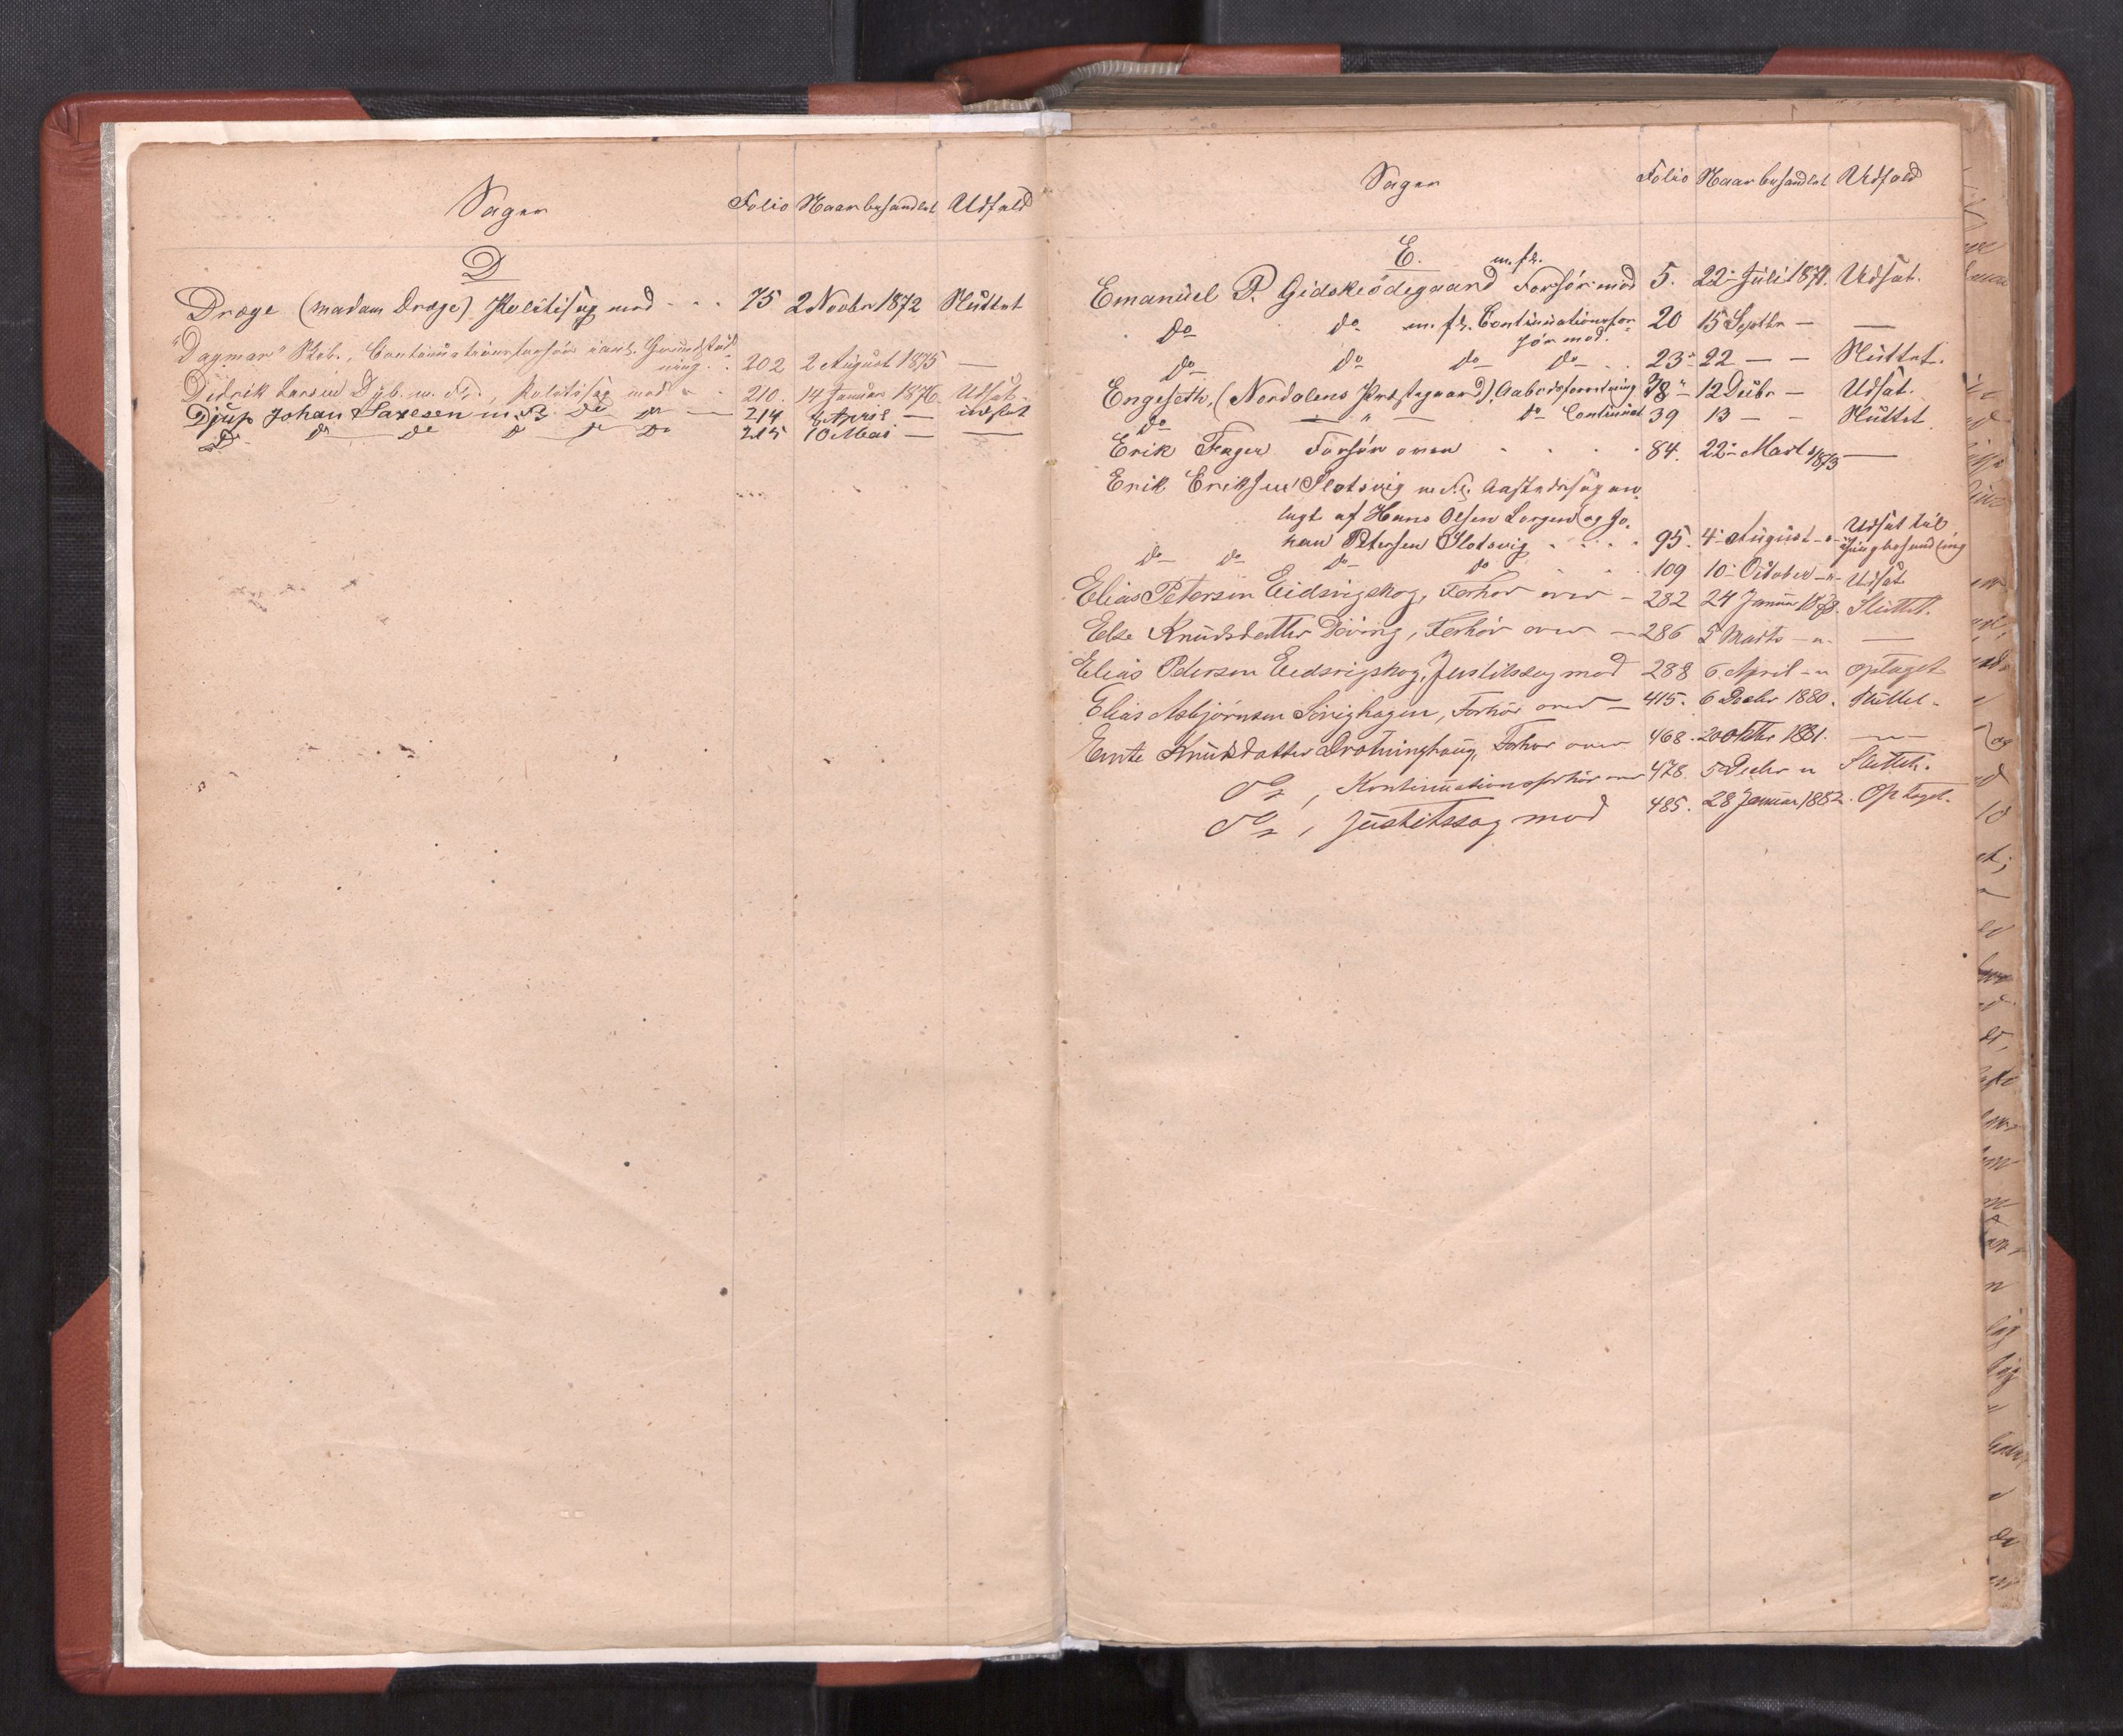 Sager Folio Naar behandlet Udfald
D
Dræge (madam Dræge) Politisag mod - - . 75 2 Novbr 1872 Sluttet
"Dagmar" Skib., Continuationsforhör i anl. Grundstød-
ning . . 202 2 August 1875 —
Didrik Larsen Dyb. m. fl., Politisag mod - - 210. 14 Januar 1876. Udsat.
Djup Johan Saxesen m. Fl. Do Do — 214 April — udsat
Do Do Do Do Do Do 215 10 Mai — —
Sager Folio Naar behandlet Udfald
E.
Emanuel P. Gidskeödegaard m. fl. Forhör mod 5. 22 Juli 1871. Udsat.
Do Do m. fl. Continuationsfor-
hör mod. 20 15 Septbr — —
Do Do Do Do . . 23 22 — — Sluttet.
Engeseth, (Nordalens Præstegaard), Aabodsforretning. 38 12 Decbr — Udsat.
Do — " — Do Continuat. 39 13 — — Sluttet.
Erik Fager Forhör over . . . . 84. 22 Marts 1873 —
Erik Eriksen Slotsvig m. Fl. Aastedssag an-
lagt af Hans Olsen Longva og Jo-
han Petersen Slotsvig . . . . 95. 4 August - " - Udsat til
Thingbehandling
Do Do Do Do . . 109 10 October - " - Udsat
Elias Petersen Eidsvigskog, Forhör over - 282 24 Januar 1878. Sluttet.
Else Knudsdatter Döving, Forhör over — 286 5 Marts - " - —
Elias Pedersen Eidsvigskog, Justitssag mod 288 6 April - " optaget
Elias Asbjörnsen Sörighagen, Forhör over — 415. 6 Decbr 1880. Sluttet.
Ente Knutsdatter Drotninghaug, Forhör over 468. 20 Oktbr 1881. — " —
Do, Kontinuationsforhör over 478. 5 Decbr " Sluttet.
Do, Justitssag mod 485. 28 Januar 1882. Optaget.